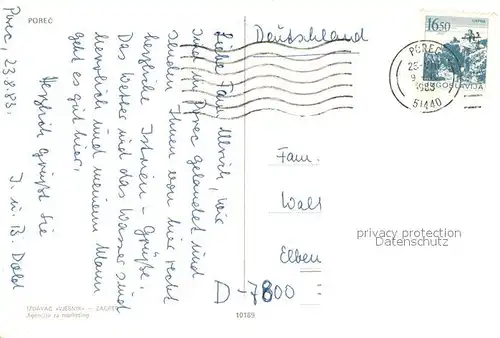 POREČ
Porec, 23.8.83.
Liebe Fam. Ullrich, wir
sind in Porec gelandet und
senden Ihnen von hier recht
herzliche Istrien-Grüße.
Das Wetter und das Wasser sind
herrlich und meinem Mann
geht es gut hier.
Herzlich grüßt Sie
J. u. B. Dold
IZDAVAČ »VJESNIK« — ZAGREB
Agencija za marketing
10189
Deutschland
Fam.
Wall
Elben
D-7800
privacy protection
Datenschutz
16.50
JUGOSLAVIJA
POREČ
1983
51440